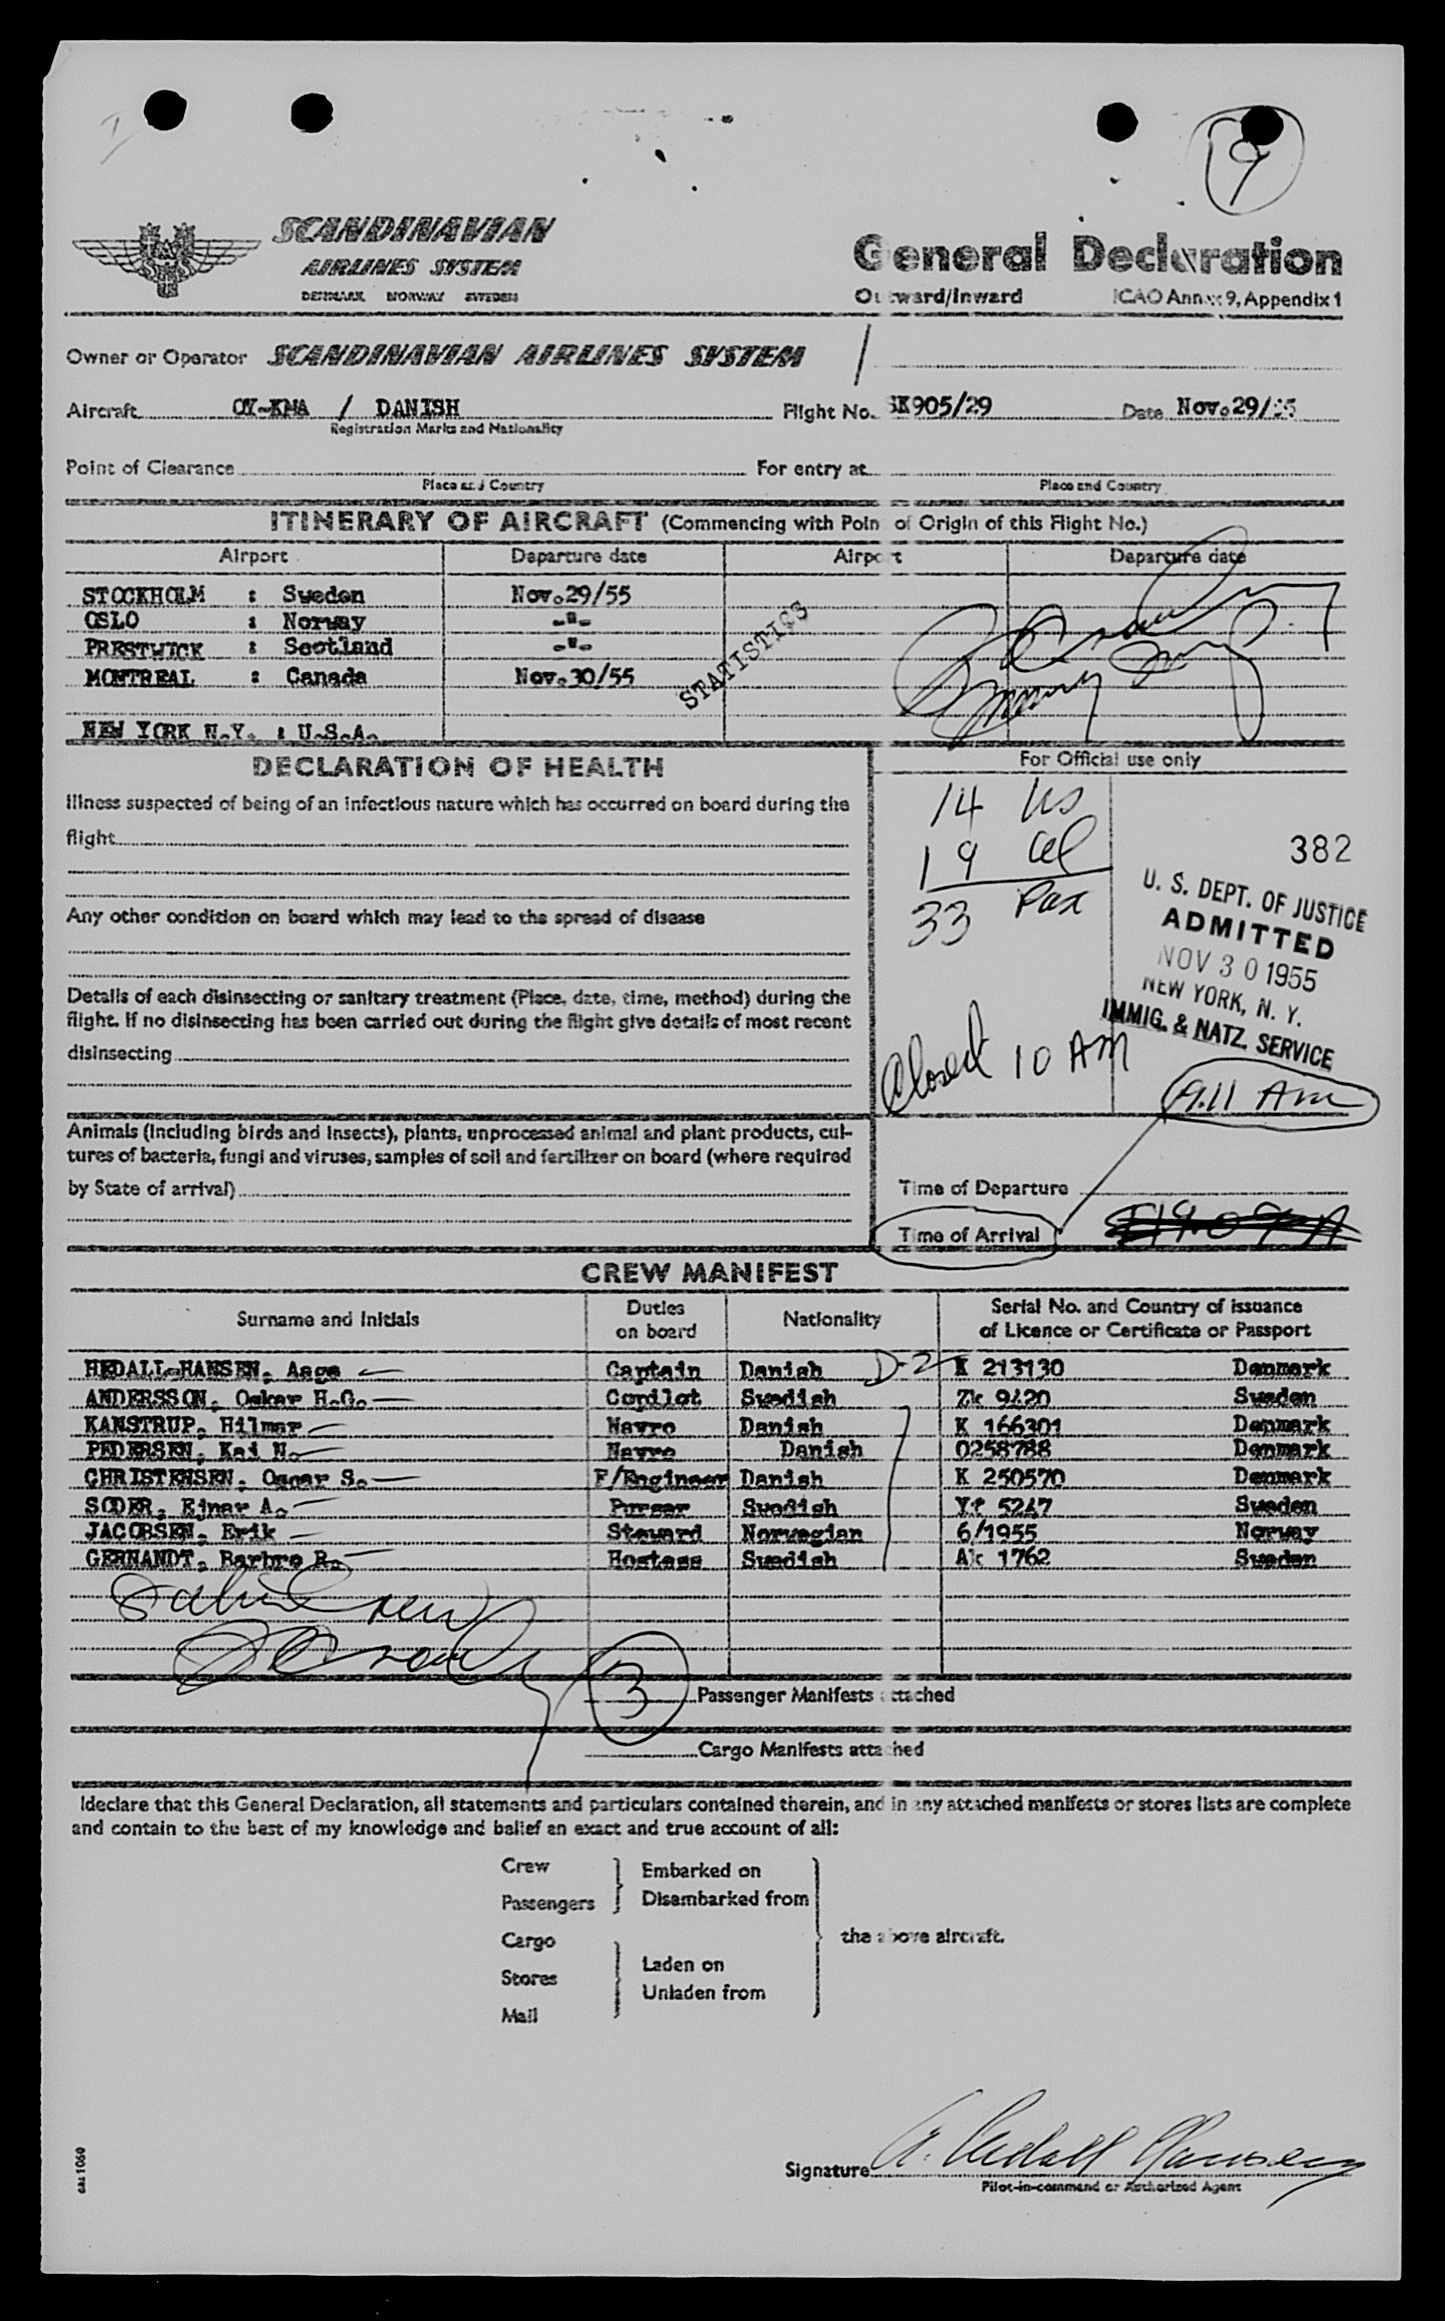 9
SCANDINAVIAN
AIRLINES SYSTEM
DENMARK NORWAY SWEDEN
General Declaration
Outward/Inward ICAO Annex 9, Appendix 1
Owner or Operator SCANDINAVIAN AIRLINES SYSTEM
Aircraft OY-KMA / DANISH Flight No. SK905/29 Date Nov.29/55
Registration Marks and Nationality
Point of Clearance For entry at
Place and Country Place and Country
ITINERARY OF AIRCRAFT (Commencing with Point of Origin of this Flight No.)
Airport Departure date Airport Departure date
STOCKHOLM : Sweden Nov.29/55
OSLO : Norway -"-
PRESTWICK : Scotland -"-
MONTREAL : Canada Nov.30/55
STATISTICS
NEW YORK N.Y. : U.S.A.
DECLARATION OF HEALTH
Illness suspected of being of an infectious nature which has occurred on board during the
flight
Any other condition on board which may lead to the spread of disease
Details of each disinsecting or sanitary treatment (Place, date, time, method) during the
flight. If no disinsecting has been carried out during the flight give details of most recent
disinsecting
Animals (including birds and insects), plants, unprocessed animal and plant products, cul-
tures of bacteria, fungi and viruses, samples of soil and fertilizer on board (where required
by State of arrival)
For Official use only
14 US
19 al
33 Pax
382
U. S. DEPT. OF JUSTICE
ADMITTED
NOV 30 1955
NEW YORK, N. Y.
IMMIG. & NATZ. SERVICE
Closed 10 AM
9.11 AM
Time of Departure
Time of Arrival
CREW MANIFEST
Surname and Initials Duties on board Nationality Serial No. and Country of issuance of Licence or Certificate or Passport
HEDALL-HANSEN, Aage Captain Danish D-2 K 213130 Denmark
ANDERSSON, Oskar H.G. Copilot Swedish Zk 9420 Sweden
KANSTRUP, Hilmar Navro Danish K 166301 Denmark
PEDERSEN, Kai N. Navro Danish 0258788 Denmark
CHRISTENSEN, Oscar S. F/Engineer Danish K 250570 Denmark
SODER, Einar A. Purser Swedish Yt 5247 Sweden
JACOBSEN, Erik Steward Norwegian 6/1955 Norway
GERNANDT, Barbro B. Hostess Swedish Ak 1762 Sweden
3 Passenger Manifests attached
Cargo Manifests attached
I declare that this General Declaration, all statements and particulars contained therein, and in any attached manifests or stores lists are complete
and contain to the best of my knowledge and belief an exact and true account of all:
Crew
Passengers
Embarked on
Disembarked from
Cargo
Stores
Mail
Laden on
Unladen from
the above aircraft.
Signature A. Hedall Hansen
Pilot-in-command or Authorized Agent
sas 1060